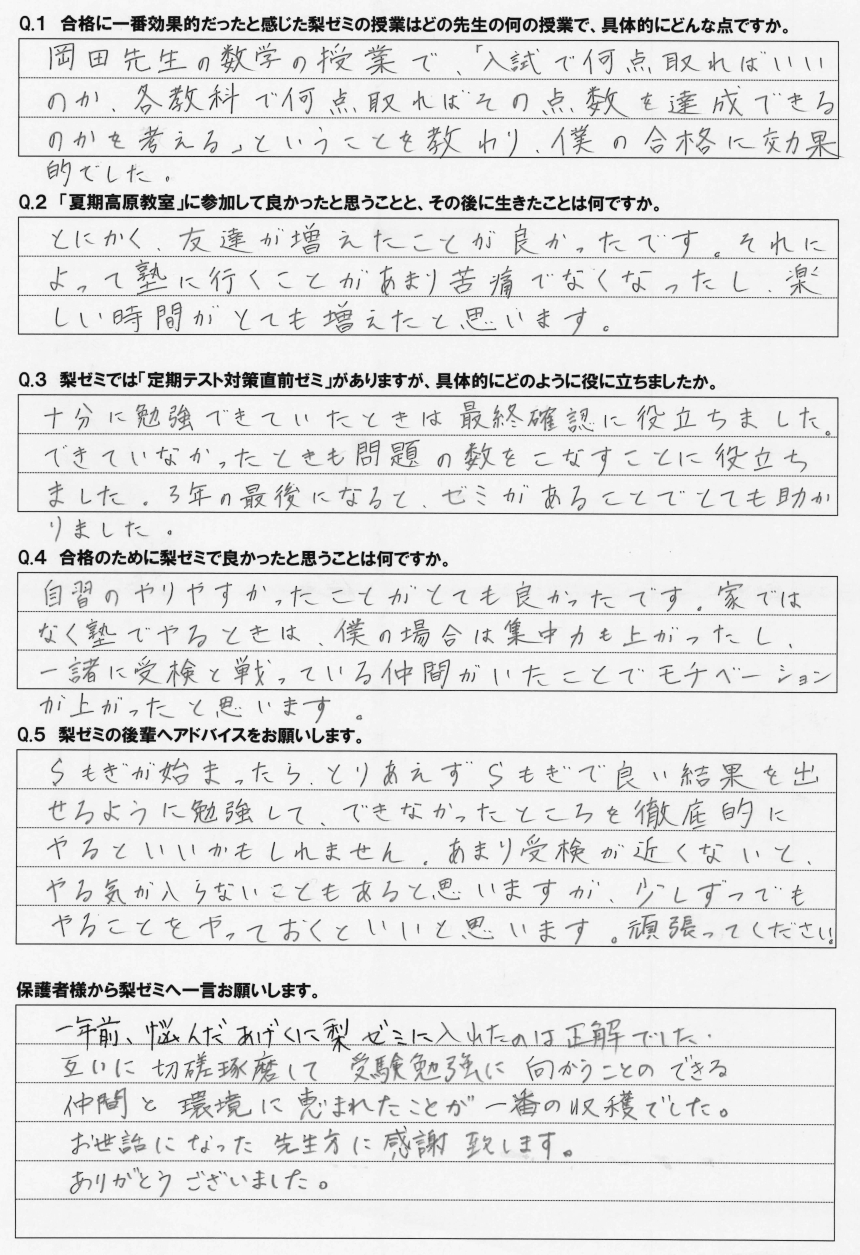 Q.1 合格に一番効果的だったと感じた梨ゼミの授業はどの先生の何の授業で、具体的にどんな点ですか。
岡田先生の数学の授業で、「入試で何点取ればいい
のか、各教科で何点取ればその点数を達成できる
のかを考える」ということを教わり、僕の合格に効果
的でした。
Q.2 「夏期高原教室」に参加して良かったと思うことと、その後に生きたことは何ですか。
とにかく、友達が増えたことが良かったです。それに
よって塾に行くことがあまり苦痛でなくなったし、楽
しい時間がとても増えたと思います。
Q.3 梨ゼミでは「定期テスト対策直前ゼミ」がありますが、具体的にどのように役に立ちましたか。
十分に勉強できていたときは最終確認に役立ちました。
できていなかったときも問題の数をこなすことに役立ち
ました。3年の最後になると、ゼミがあることでとても助か
りました。
Q.4 合格のために梨ゼミで良かったと思うことは何ですか。
自習のやりやすかったことがとても良かったです。家では
なく塾でやるときは、僕の場合は集中力も上がったし、
一諸に受検と戦っている仲間がいたことでモチベーション
が上がったと思います。
Q.5 梨ゼミの後輩へアドバイスをお願いします。
Sもぎが始まったら、とりあえずSもぎで良い結果を出
せるように勉強して、できなかったところを徹底的に
やるといいかもしれません。あまり受検が近くないと、
やる気が入らないこともあると思いますが、少しずつでも
やることをやっておくといいと思います。頑張ってください!
保護者様から梨ゼミへ一言お願いします。
一年前、悩んだあげくに梨ゼミに入れたのは正解でした。
互いに切磋琢磨して受験勉強に向かうことのできる
仲間と環境に恵まれたことが一番の収穫でした。
お世話になった先生方に感謝致します。
ありがとうございました。